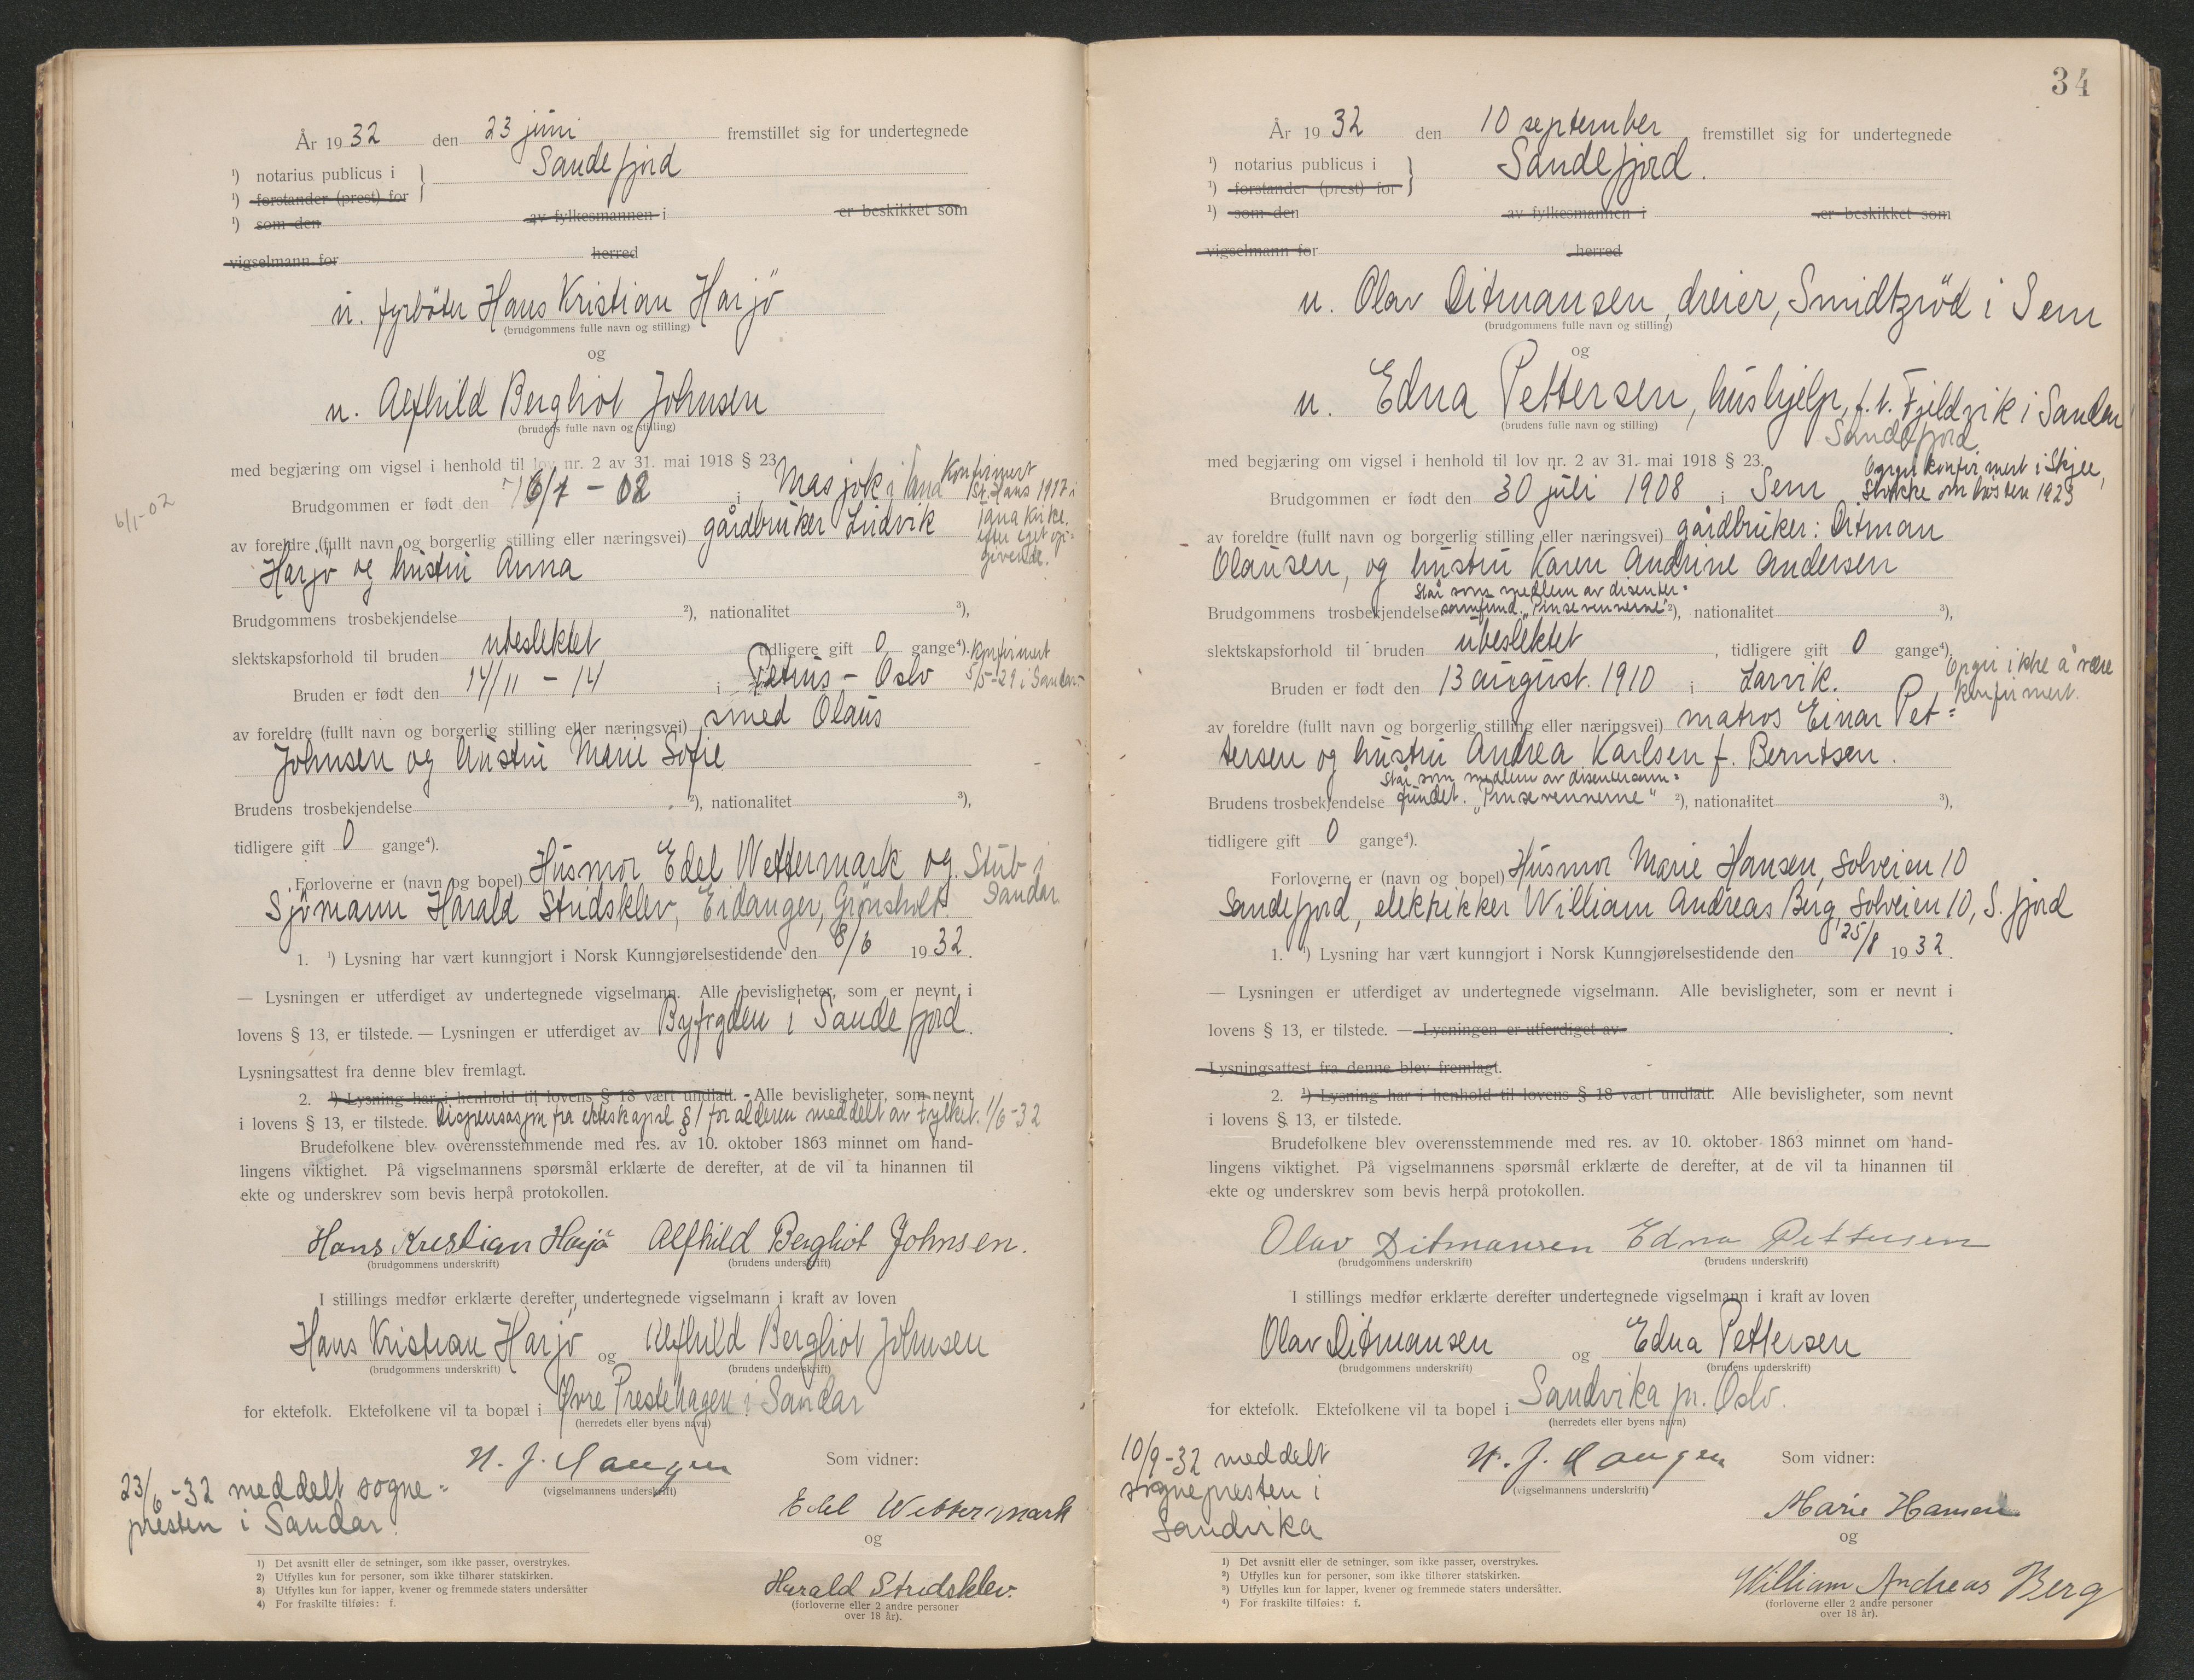 År 1932 den 23 juni fremstillet sig for undertegnede
¹) notarius publicus i } Sandefjord
¹) forstander (prest) for
¹) som den av fylkesmannen i er beskikket som
vigselmann for herred
u. fyrbøter Hans Kristian Harjö
(brudgommens fulle navn og stilling)
og
u. Alfhild Bergliot Johnsen
(brudens fulle navn og stilling)
med begjæring om vigsel i henhold til lov nr. 2 av 31. mai 1918 § 23.
Konfirmert
St. Hans 1917 i
Tana kirke.
efter eget opgivende.
6/1-02
Brudgommen er født den 6/7 - 02 i Masjok i Tana
av foreldre (fullt navn og borgerlig stilling eller næringsvei) gårdbruker Ludvik
Harjö og hustru Anna
Brudgommens trosbekjendelse ²), nationalitet ³),
slektskapsforhold til bruden ubeslektet tidligere gift 0 gange⁴).
Konfirmert
5/5-29 i Sandar.
Bruden er født den 14/11 - 14 i Petrus - Oslo
av foreldre (fullt navn og borgerlig stilling eller næringsvei) smed Olaus
Johnsen og hustru Marie Sofie
Brudens trosbekjendelse ²), nationalitet ³),
tidligere gift 0 gange⁴).
Forloverne er (navn og bopel) Husmor Edel Wettermark og Stub i
Sandar.
Sjömann Harald Stridsklev, Eidanger, Grönsholt.
1. ¹) Lysning har vært kunngjort i Norsk Kunngjørelsestidende den 8/6 1932.
— Lysningen er utferdiget av undertegnede vigselmann. Alle bevisligheter, som er nevnt i
lovens § 13, er tilstede. — Lysningen er utferdiget av Byfogden i Sandefjord.
Lysningsattest fra denne blev fremlagt.
2. ¹) Lysning har i henhold til lovens § 18 vært undlatt. - Alle bevisligheter, som nevnt
i lovens § 13, er tilstede. Dispensasjon fra ekteskapsl. § 1 for alderen meddelt av Fylket. 1/6-32
Brudefolkene blev overensstemmende med res. av 10. oktober 1863 minnet om hand-
lingens viktighet. På vigselmannens spørsmål erklærte de derefter, at de vil ta hinannen til
ekte og underskrev som bevis herpå protokollen.
Hans Kristian Harjö Alfhild Bergliot Johnsen.
(brudgommens underskrift) (brudens underskrift)
I stillings medfør erklærte derefter undertegnede vigselmann i kraft av loven
Hans Kristian Harjö og Alfhild Bergliot Johnsen
(brudgommens underskrift) (brudens underskrift)
for ektefolk. Ektefolkene vil ta bopæl i Øvre Prestehagen i Sandar
(herredets eller byens navn)
N. J. Haugen
(vigselmannens underskrift)
Som vidner:
23/6-32 meddelt sogne=
presten i Sandar.
Edel Wettermark
og
Harald Stridsklev.
(forloverne eller 2 andre personer
over 18 år).
1) Det avsnitt eller de setninger, som ikke passer, overstrykes.
2) Utfylles kun for personer, som ikke tilhører statskirken.
3) Utfylles kun for lapper, kvener og fremmede staters undersåtter
4) For fraskilte tilføies: f.
34
År 1932 den 10 september fremstillet sig for undertegnede
¹) notarius publicus i } Sandefjord.
¹) forstander (prest) for
¹) som den av fylkesmannen i er beskikket som
vigselmann for herred
u. Olav Ditmansen, dreier, Smidtsröd i Sem
(brudgommens fulle navn og stilling)
og
u. Edna Pettersen, hushjelp, f.t. Fjeldvik i Sandar
(brudens fulle navn og stilling) Sandefjord
med begjæring om vigsel i henhold til lov nr. 2 av 31. mai 1918 § 23.
Opgir konfirmert i Skjee,
Stokke om hösten 1923
Brudgommen er født den 30 juli 1908 i Sem
av foreldre (fullt navn og borgerlig stilling eller næringsvei) gårdbruker: Ditman
Olausen, og hustru Karen Andrine Andersen
Står som medlem av disenter=
Brudgommens trosbekjendelse samfund. "Pinsevennerne" ²), nationalitet ³),
slektskapsforhold til bruden ubeslektet, tidligere gift 0 gange⁴).
Opgir ikke å være
konfirmert.
Bruden er født den 13 august. 1910 i Larvik.
av foreldre (fullt navn og borgerlig stilling eller næringsvei) matros Einar Pet=
tersen og hustru Andrea Karlsen f. Berntsen.
Står som medlem av disentersam=
Brudens trosbekjendelse fundet. "Pinsevennerne" ²), nationalitet ³),
tidligere gift 0 gange⁴).
Forloverne er (navn og bopel) Husmor Marie Hansen, Solveien 10
Sandefjord, elektrikker William Andreas Berg, Solveien 10, S.fjord
1. ¹) Lysning har vært kunngjort i Norsk Kunngjørelsestidende den 25/8 1932.
— Lysningen er utferdiget av undertegnede vigselmann. Alle bevisligheter, som er nevnt i
lovens § 13, er tilstede. — Lysningen er utferdiget av
Lysningsattest fra denne blev fremlagt.
2. ¹) Lysning har i henhold til lovens § 18 vært undlatt. Alle bevisligheter, som nevnt
i lovens § 13, er tilstede.
Brudefolkene blev overensstemmende med res. av 10. oktober 1863 minnet om hand-
lingens viktighet. På vigselmannens spørsmål erklærte de derefter, at de vil ta hinannen til
ekte og underskrev som bevis herpå protokollen.
Olav Ditmansen Edna Pettersen
(brudgommens underskrift) (brudens underskrift)
I stillings medfør erklærte derefter undertegnede vigselmann i kraft av loven
Olav Ditmansen og Edna Pettersen
(brudgommens underskrift) (brudens underskrift)
for ektefolk. Ektefolkene vil ta bopel i Sandvika pr. Oslo.
(herredets eller byens navn)
10/9-32 meddelt
sognepresten i
Sandvika
N. J. Haugen
(vigselmannens underskrift)
Som vidner:
Marie Hansen
og
William Andreas Berg
(forloverne eller 2 andre personer
over 18 år).
1) Det avsnitt eller de setninger, som ikke passer, overstrykes.
2) Utfylles kun for personer, som ikke tilhører statskirken.
3) Utfylles kun for lapper, kvener og fremmede staters undersåtter.
4) For fraskilte tilføies: f.